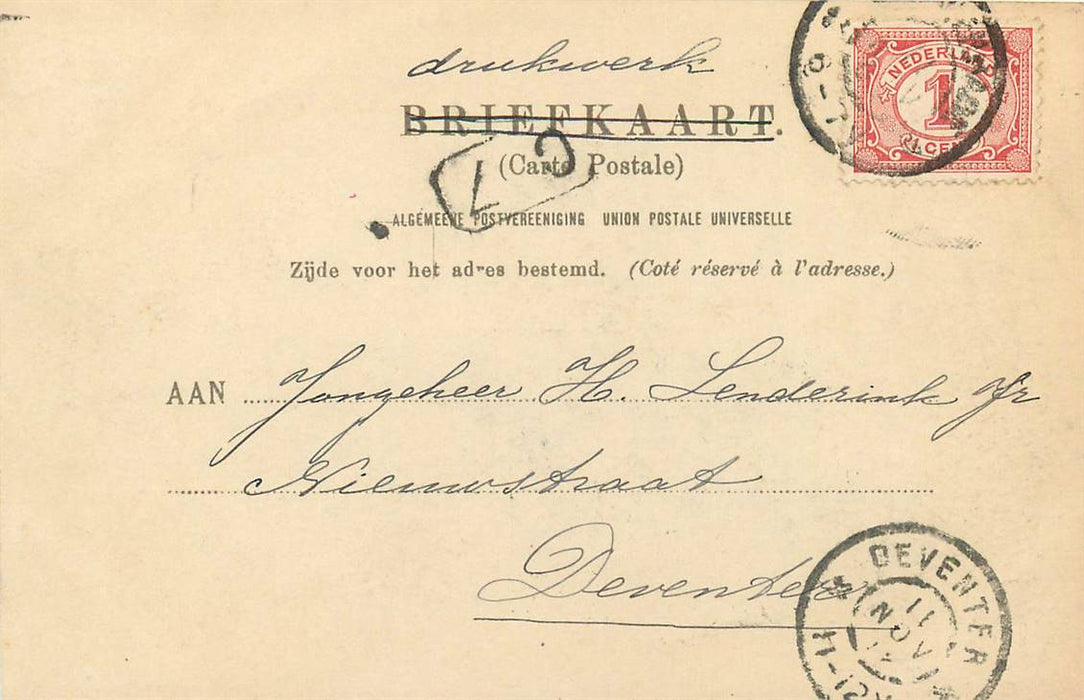 drukwerk
BRIEFKAART.
(Carte Postale)
ALGEMEENE POSTVEREENIGING UNION POSTALE UNIVERSELLE
Zijde voor het adres bestemd. (Coté réservé à l'adresse.)
AAN Jongeheer H. Lenderink Jr
Nieuwstraat
Deventer
NEDERLAND
1
CENT
7
DEVENTER
11
NOV
11-12